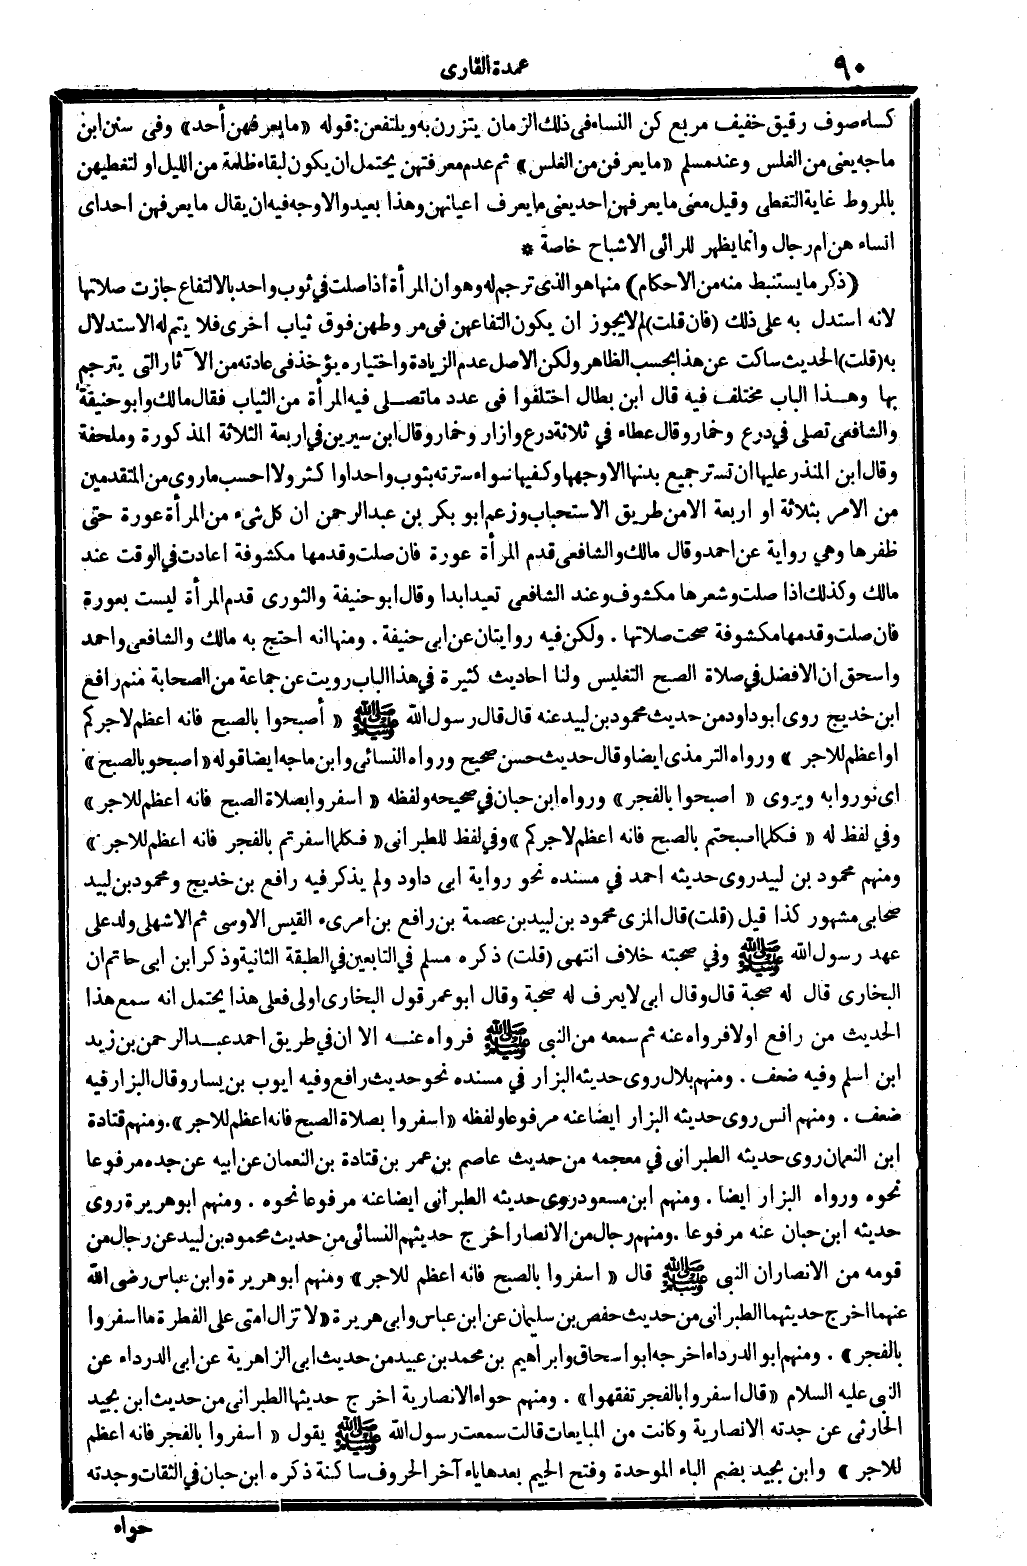 ٩٠
عمدة القارى
كساء صوف رقيق خفيف مربع كن النساء فى ذلك الزمان يتزرن به ويلتفعن : قوله «ما يعرفهن أحد» وفى سنن ابن
ماجه يعنى من الغلس وعند مسلم «ما يعرفن من الغلس» ثم عدم معرفتهن يحتمل ان يكون لبقاء ظلمة من الليل او لتغطيهن
بالمروط غاية التغطى وقيل معنى ما يعرفهن احد يعنى ما يعرف اعيانهن وهذا بعيد والاوجه فيه ان يقال ما يعرفهن احد اى
انساء هن ام رجال وانما يظهر للرائى الاشباح خاصة *
(ذكر ما يستنبط منه من الاحكام) منها هو الذى ترجم له وهو ان المرأة اذا صلت فى ثوب واحد بالالتفاع جازت صلاتها
لانه استدل به على ذلك (فان قلت) لم لا يجوز ان يكون التفاعهن فى مروطهن فوق ثياب اخرى فلا يتم له الاستدلال
به (قلت) الحديث ساكت عن هذا بحسب الظاهر ولكن الاصل عدم الزيادة واختياره يؤخذ فى عادته من الآثار التى يترجم
بها وهذا الباب مختلف فيه قال ابن بطال اختلفوا فى عدد ما تصلى فيه المرأة من الثياب فقال مالك وابو حنيفة
والشافعى تصلى فى درع وخمار وقال عطاء فى ثلاثة درع وازار وخمار وقال ابن سيرين فى اربعة الثلاثة المذكورة وملحفة
وقال ابن المنذر عليها ان تستر جميع بدنها الا وجهها وكفيها سواء سترته بثوب واحد او اكثر ولا احسب ما روى من المتقدمين
من الامر بثلاثة او اربعة الا من طريق الاستحباب وزعم ابو بكر بن عبد الرحمن ان كل شىء من المرأة عورة حتى
ظفرها وهي رواية عن احمد وقال مالك والشافعى قدم المرأة عورة فان صلت وقدمها مكشوفة اعادت فى الوقت عند
مالك وكذلك اذا صلت وشعرها مكشوف وعند الشافعى تعيد ابدا وقال ابو حنيفة والثورى قدم المرأة ليست بعورة
فان صلت وقدمها مكشوفة صحت صلاتها . ولكن فيه روايتان عن ابى حنيفة . ومنها انه احتج به مالك والشافعى واحمد
واسحق ان الافضل فى صلاة الصبح التغليس ولنا احاديث كثيرة فى هذا الباب رويت عن جماعة من الصحابة منهم رافع
ابن خديج روى ابو داود من حديث محمود بن لبيد عنه قال قال رسول الله ﷺ « أصبحوا بالصبح فانه اعظم لاجركم
او اعظم للاجر » ورواه الترمذى ايضا وقال حديث حسن صحيح ورواه النسائى وابن ماجه ايضا قوله «اصبحو بالصبح»
اى نوروا به ويروى « اصبحوا بالفجر» ورواه ابن حبان فى صحيحه ولفظه « اسفروا بصلاة الصبح فانه اعظم للاجر»
وفى لفظ له « فكلما اصبحتم بالصبح فانه اعظم لاجركم » وفى لفظ للطبرانى « فكلما اسفرتم بالفجر فانه اعظم للاجر »
ومنهم محمود بن لبيد روى حديثه احمد فى مسنده نحو رواية ابى داود ولم يذكر فيه رافع بن خديج ومحمود بن لبيد
صحابى مشهور كذا قيل (قلت) قال المزى محمود بن لبيد بن عصمة بن رافع بن امرىء القيس الاوسى ثم الاشهلى ولد على
عهد رسول الله ﷺ وفي صحبته خلاف انتهى (قلت) ذكره مسلم فى التابعين فى الطبقة الثانية وذكر ابن ابى حاتم ان
البخارى قال له صحبة قال وقال ابى لا يعرف له صحبة وقال ابو عمر قول البخارى اولى فعلى هذا يحتمل انه سمع هذا
الحديث من رافع اولا فرواه عنه ثم سمعه من النبى ﷺ فرواه عنه الا ان فى طريق احمد عبد الرحمن بن زيد
ابن اسلم وفيه ضعف . ومنهم بلال روى حديثه البزار في مسنده نحو حديث رافع وفيه ايوب بن يسار وقال البزار فيه
ضعف . ومنهم انس روى حديثه البزار ايضا عنه مرفوعا ولفظه «اسفروا بصلاة الصبح فانه اعظم للاجر». ومنهم قتادة
ابن النعمان روى حديثه الطبرانى في معجمه من حديث عاصم بن عمر بن قتادة بن النعمان عن ابيه عن جده مرفوعا
نحوه ورواه البزار ايضا . ومنهم ابن مسعود روى حديثه الطبرانى ايضا عنه مرفوعا نحوه . ومنهم ابو هريرة روى
حديثه ابن حبان عنه مرفوعا . ومنهم رجال من الانصار اخرج حديثهم النسائى من حديث محمود بن لبيد عن رجال من
قومه من الانصار ان النبى ﷺ قال « اسفروا بالصبح فانه اعظم للاجر» ومنهم ابو هريرة وابن عباس رضى الله
عنهما اخرج حديثهما الطبرانى من حديث حفص بن سليمان عن ابن عباس وابى هريرة «لا تزال امتى على الفطرة ما اسفروا
بالفجر» . ومنهم ابو الدرداء اخرجه ابو اسحاق وابراهيم بن محمد بن عبيد من حديث ابى الزاهرية عن ابى الدرداء عن
النبى عليه السلام «قال اسفروا بالفجر تفقهوا» . ومنهم حواء الانصارية اخرج حديثها الطبرانى من حديث ابن بجيد
الحارثى عن جدته الانصارية وكانت من المبايعات قالت سمعت رسول الله ﷺ يقول « اسفروا بالفجر فانه اعظم
للاجر » وابن بجيد بضم الباء الموحدة وفتح الجيم بعدها ياء آخر الحروف ساكنة ذكره ابن حبان فى الثقات وجدته
حواء